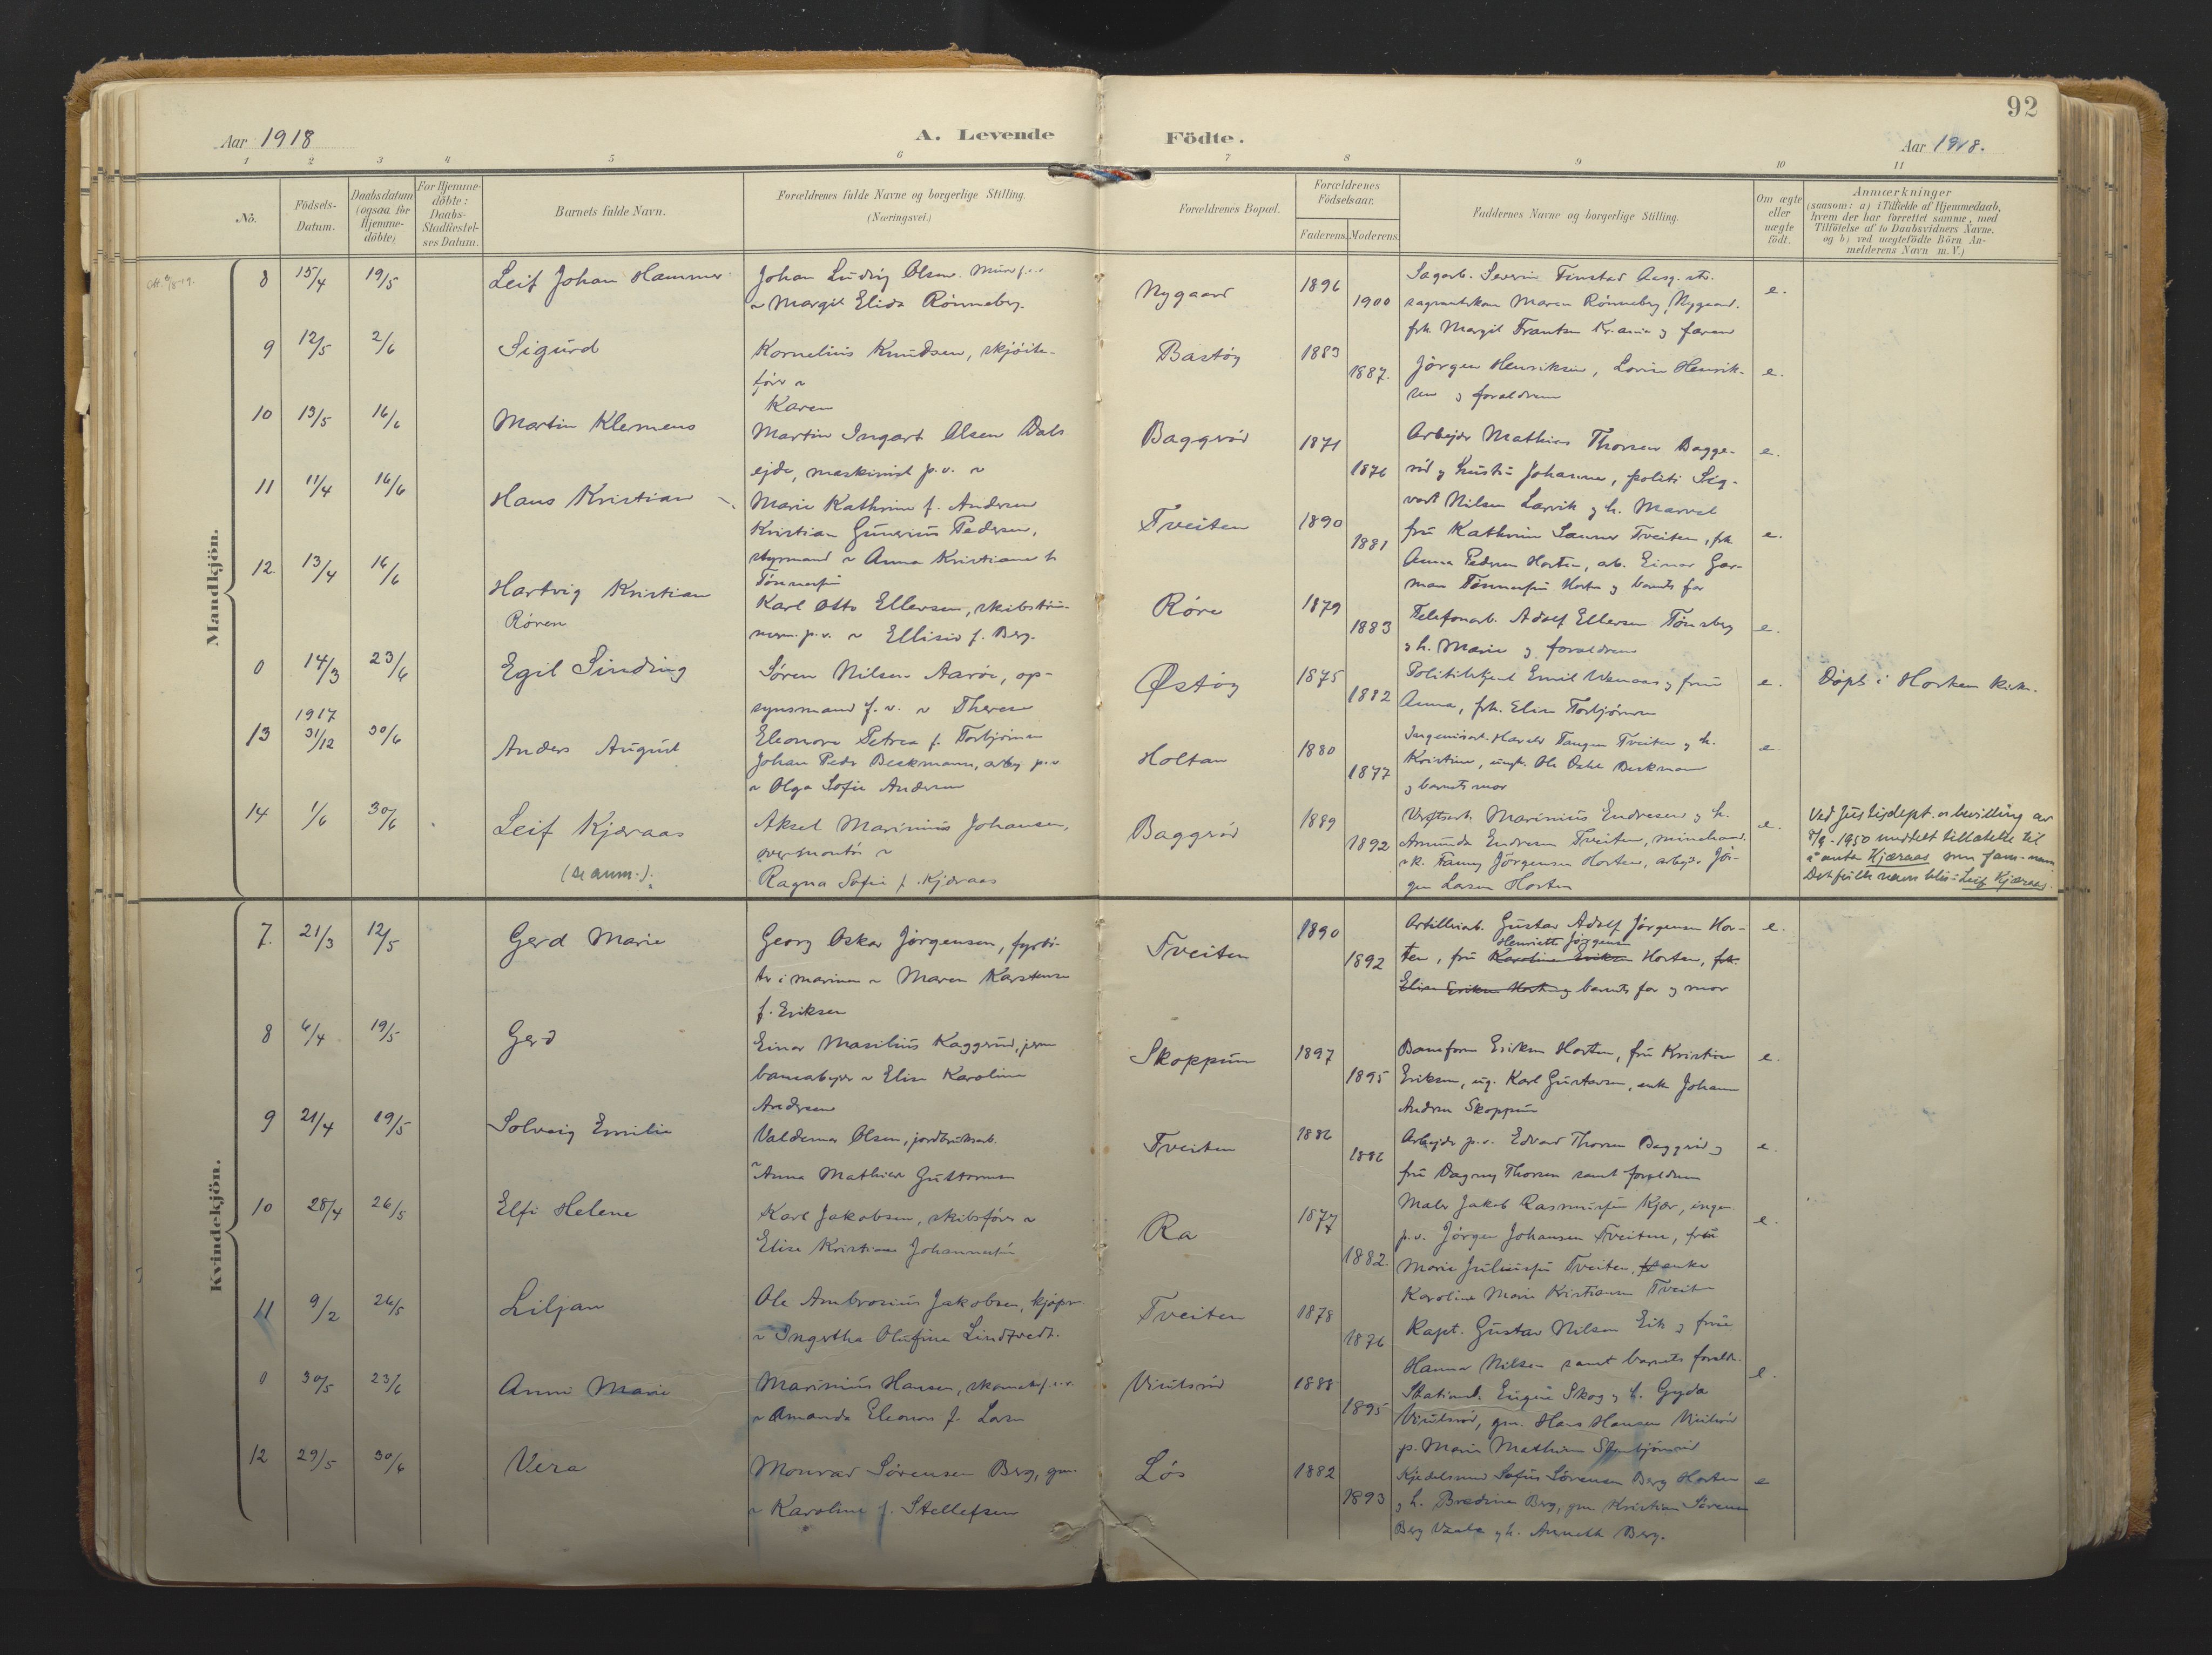 92
Aar 1918
A. Levende Födte.
Aar 1918.
1 2 3 4 5 6 7 8 9 10 11
Nö.
Födsels-Datum.
Daabsdatum (ogsaa for Hjemmedöbte)
For Hjemmedöbte: Daabs-Stadfæstelses Datum.
Barnets fulde Navn.
Forældrenes fulde Navne og borgerlige Stilling. (Næringsvei.)
Forældrenes Bopæl.
Forældrenes Födselsaar.
Faderens. Moderens.
Faddernes Navne og borgerlige Stilling.
Om ægte eller uægte födt.
Anmærkninger
(saasom: a) i Tilfælde af Hjemmedaab,
hvem der har forrettet samme, med
Tilföielse af to Daabsvidners Navne.
og b) ved uægtefödte Börn An-
melderens Navn m. V.)
Mandkjön.
8 15/4 19/5 Leif Johan Hammer
Johan Ludvig Olsen
Margit Elida Rönneberg
Nygaard 1896 1900
Maren Rönneberg, Nygaard.
frk. Margit Frantsen Kr.ania og faren
e.
9 12/5 2/6 Sigurd
Kornelius Knudsen, skjöite-
förer
Karen
Bastöy 1883 1887.
Jörgen Henriksen, Henrik-
sen og forældrene
e.
10 13/5 16/6 Martin Klemens
Martin Ingart Olsen Dals
ejde, maskinist p.v.
Marie Kathrine f. Andersen
Baggeröd 1871 1876
Arbejder Mathias Thorsen Bagge-
röd Johanne, politi Sig-
vart Nilsen Larvik
e.
11 11/4 16/6 Hans Kristian
Kristian Gunerius Pedersen,
styrmand Anna Kristiane
Tönnesen
Tveiten 1890 1881
fru Kathrine Sanner Tveiten, frk.
Anna Pedersen Horten, arb. Einar Gar-
man Horten og barnets far
e.
12. 13/4 16/6 Hartvig Kristian
Rören
Karl Otto Ellersen, skibstöm-
merm. p.v. Ellisiv f. Berg.
Röre 1879 1883
Telefonarb. Adolf Ellersen Tönsberg
og h. Marie og forældrene
e.
0 14/3 23/6 Egil Sinding
Sören Nilsen Aaröe, op-
synsmand Therese
Eleonora Petrea f. Torbjörnsen
Östöy 1875 1882
Politibetjent Emil og frue
Anna, frk. Elise Torbjörnsen
e. Döpt i Horten kirke.
13 1917 31/12 30/6 Anders August
Johan Peder Beckmann, arb. p.v
Olga Sofie Andersen
Holtan 1880 1877
Tangen Tveiten og h.
Kristine, ungk. Ole Beckmann
og barnets mor
e.
14 1/6 30/6 Leif Kjæraas
(se anm.).
Aksel Marinius Johansen,
Ragna Sofie f. Kjæraas
Baggeröd 1889 1892
Marinius Endresen og h.
Amunda Endresen Tveiten,
Fanny Jörgensen Horten, arbejder Jör-
gen Larsen Horten
e.
Ved Justisdept.s bevilling av
8/9-1950 meddelt tillatelse til
å anta Kjæraas som fam.-navn
Det fulle navn blir: Leif Kjæraas.
Kvindekjön.
7. 21/3 12/5 Gerd Marie
Georg Oskar Jörgensen, fyrbö-
ter i marinen Maren Karstense
f. Eriksen
Tveiten 1890 1892
Artilleriarb. Gustav Adolf Jörgensen Hor-
Henriette Jörgensen
ten, fru Karoline Eriksen Horten, frk.
Elise Eriksen Horten og barnets far og mor
e.
8 6/4 19/5 Gerd
Einar Marelius Kaggerud, jern
banearbejder Elise Karoline
Andersen
Skoppum 1897 1895
Baneform. Eriksen Horten, fru Kristine
Eriksen, ug. Karl Gustavsen, enke Johanne
Andersen Skoppum
e.
9 21/4 19/5 Solveig Emilie
Valdemar Olsen, jordbruksarb.
Anna Mathilde Guttormsen
Tveiten 1886 1886
Arbejder p.v. Edvard Thorsen Baggeröd og
fru Dagny Thorsen samt forældrene
e.
10 28/4 26/5 Elfi Helene
Karl Jakobsen, skibsförer
Elise Kristiane Johannesen
Ra 1877 1882.
Maler Jakob Rasmussen Kjær,
p.v. Jörgen Johansen Tveiten, frue
Marie Juliussen Tveiten, enke
Karoline Marie Kristiansen Tveiten
e.
11 9/2 26/5 Liljan
Ole Ambrosius Jakobsen, kjöpm.
Ingertha Olufine Lindtvedt.
Tveiten 1878 1876
Kapt. Gustav Nilsen Eik og frue
Hanna Nilsen samt barnets foreldr.
e.
0 30/5 23/6 Anni Marie
Marinius Hansen,
Amanda Eleonora f. Larsen
Viulsröd 1888 1895
Eugen Skog og h. Gyda
Viulsröd, gm. Hans Hansen Viulsröd
p. Marie Mathisen
12 29/5 30/6 Vera
Monrad Sörensen Berg, gm.
Karoline f. Stellefsen
Lös 1882 1893
Kjedelsmed Sofus Sörensen Berg Horten
og h. Bredine Berg, gm Kristian Sörensen
Berg og h. Annette Berg.
e